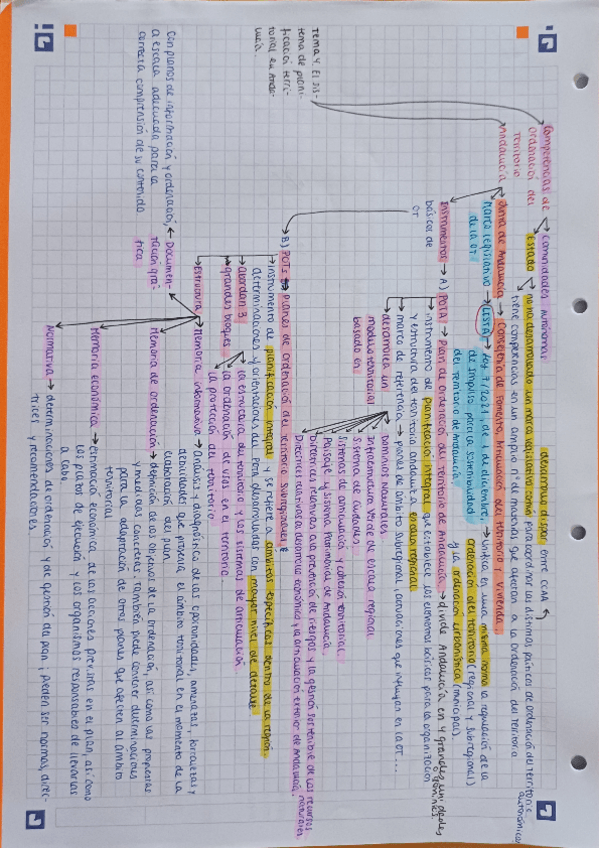 Tema 4. El sis-
tema de plani-
ficación terri-
torial en Anda-
lucía.
Competencias de
ordenación del
territorio
→ Comunidades Autónomas
→ Estado → no ha desarrollado un marco legislativo común para coordinar las distintas políticas de ordenación del territorio autonómicas
desarrollo dispar entre CCAA
→ tiene competencias en un amplio nº de materias que afectan a la ordenación del territorio
Andalucía
→ Junta de Andalucía → Consejería de Fomento, Articulación del Territorio y Vivienda.
→ Marco legislativo
de la OT
→ LISTA → Ley 7/2021, de 1 de diciembre,
de Impulso para la Sostenibilidad
de Territorio de Andalucía
→ Unifica en una misma norma la regulación de la
ordenación del territorio (regional y subregional)
y la ordenación urbanística (municipal).
Instrumentos
básicos de
OT
→ A) POTA → Plan de Ordenación del Territorio de Andalucía → divide Andalucía en 4 grandes unidades
→ instrumento de planificación integral que establece los elementos básicos para la organización
y estructura del territorio andaluz a escala regional
→ marco de referencia → planes de ámbito subregional, actuaciones que influyan en la OT...
→ desarrolla un
modelo territorial
basado en
Dominios Naturales.
Infraestructura Verde de escala regional
Sistema de ciudades.
Sistemas de articulación y cohesión territorial.
Paisaje y Sistema Patrimonial de Andalucía.
Directrices relativas a la prevención de riesgos y la gestión sostenible de los recursos naturales.
Directrices relativas a desarrollo económico y la articulación exterior de Andalucía.
→ B) POTs → Planes de Ordenación del Territorio Subregionales
→ instrumento de planificación integral y se refiere a ámbitos específicos dentro de la región.
determinaciones y orientaciones del POTA desarrolladas con mayor nivel de detalle
→ abordan 3
grandes bloques
→ la estructura del territorio y los sistemas de articulación
→ la ordenación de usos en el territorio
→ la protección del territorio
→ Estructura
→ Memoria informativa → Análisis y diagnóstico de las oportunidades, amenazas, fortalezas y
debilidades que presenta el ámbito territorial en el momento de la
elaboración del plan
→ Memoria de ordenación → definición de los objetivos de la ordenación, así como las propuestas
y medidas concretas. También puede contener determinaciones
para la adaptación de otros planes que afecten al ámbito
territorial
→ Memoria económica → estimación económica de las acciones previstas en el plan, así como
los plazos de ejecución y los organismos responsables de llevarlas
a cabo.
→ Normativa → determinaciones de ordenación y de gestión del plan; pueden ser normas, direc-
trices y recomendaciones.
→ Documen-
tación grá-
fica
Con planos de información y ordenación,
a escala adecuada para la
correcta comprensión de su contenido